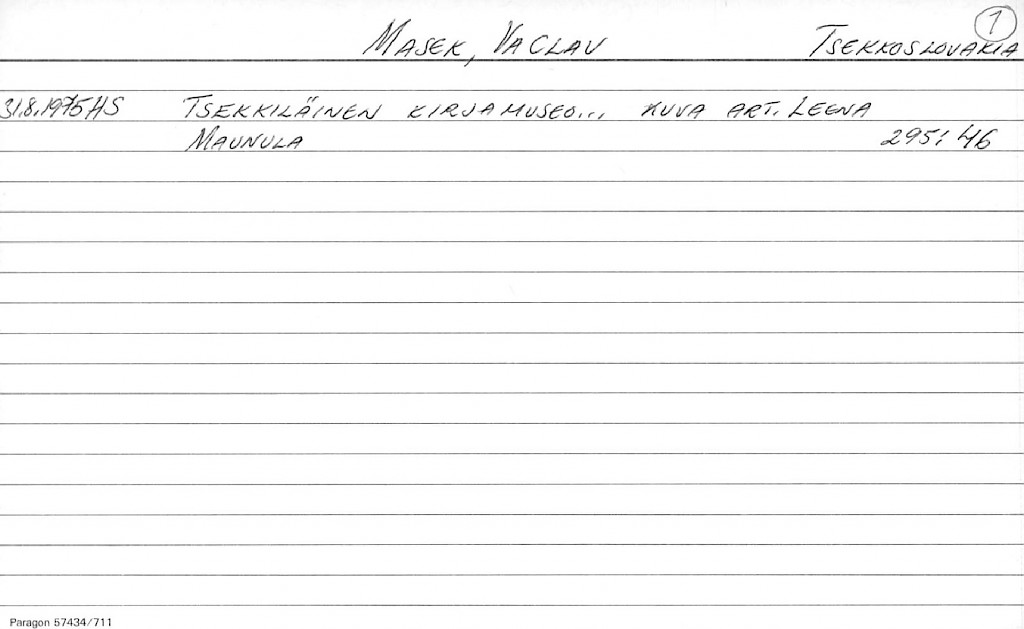 1
MASEK, VACLAV TSEKKOSLOVAKIA
31.8.1975 HS TSEKKILÄINEN KIRJAMUSEO... KUVA ART. LEENA
MAUNULA 295: 46
Paragon 57434/711